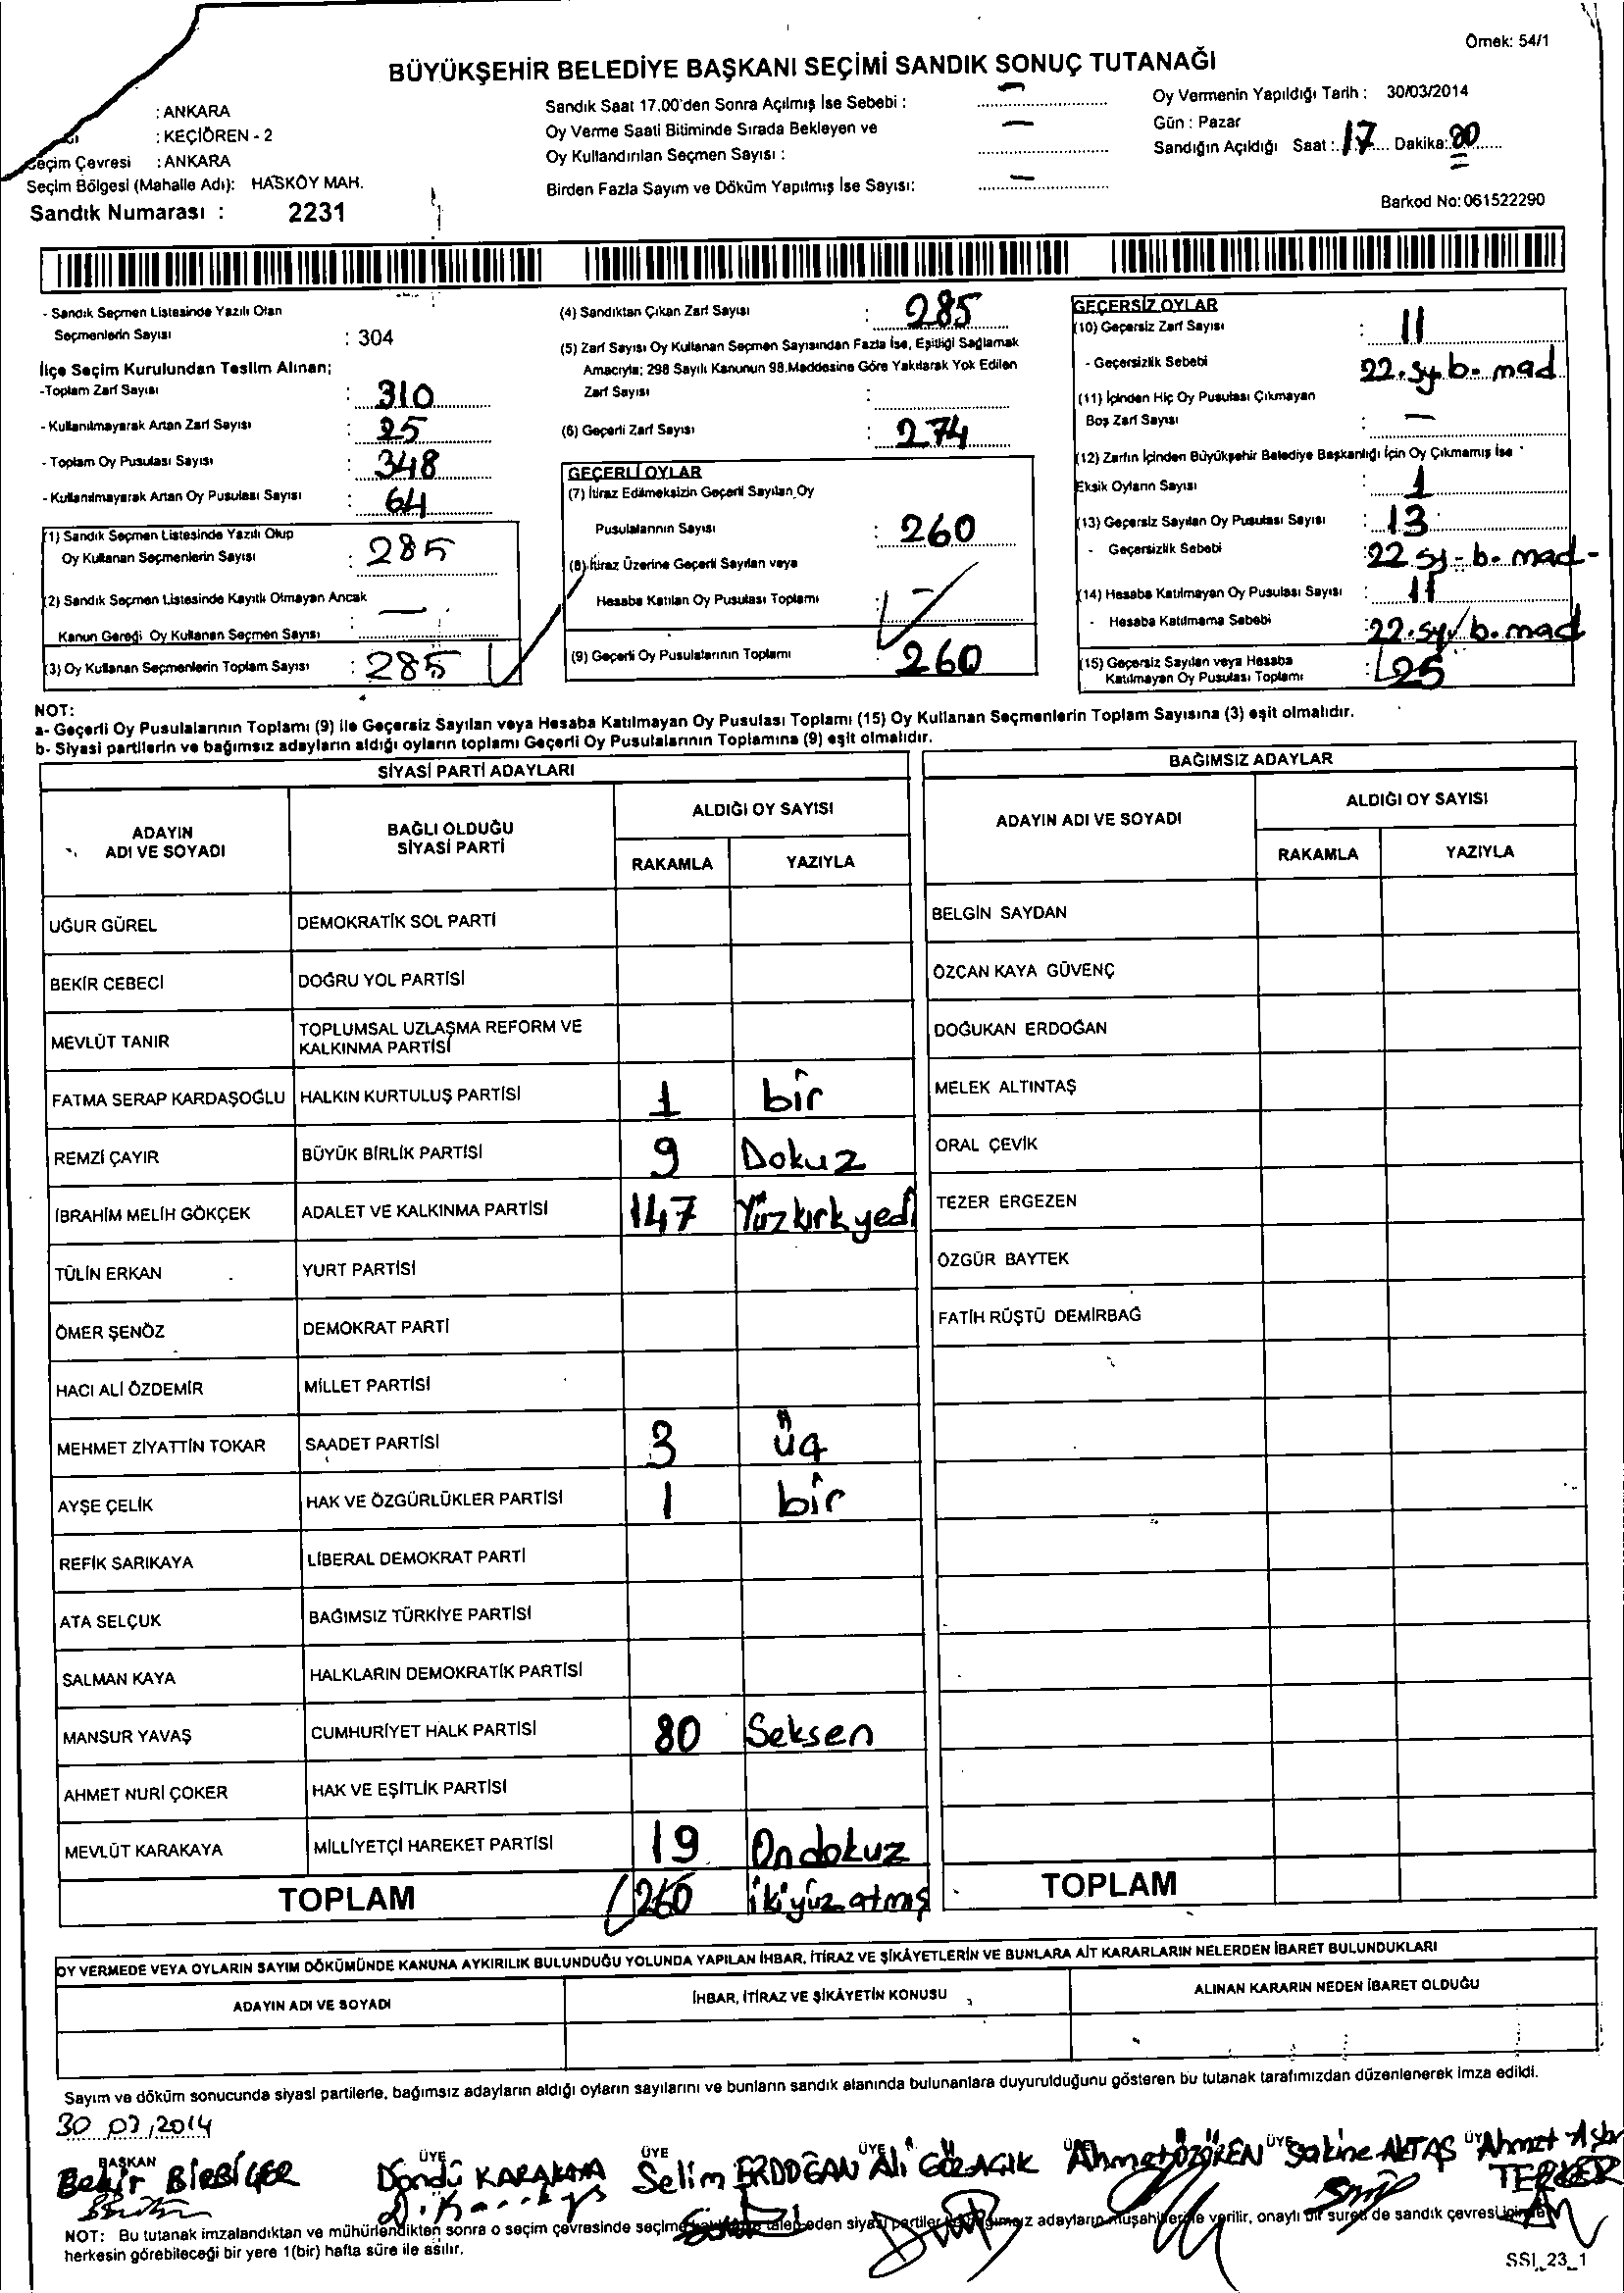 Örnek: 54/1
BÜYÜKŞEHİR BELEDİYE BAŞKANI SEÇİMİ SANDIK SONUÇ TUTANAĞI
: ANKARA
: KEÇİÖREN - 2
Seçim Çevresi : ANKARA
Seçim Bölgesi (Mahalle Adı): HASKÖY MAH.
Sandık Numarası : 2231
Sandık Saat 17.00'den Sonra Açılmış İse Sebebi : —
Oy Verme Saati Bitiminde Sırada Bekleyen ve
Oy Kullandırılan Seçmen Sayısı : —
Birden Fazla Sayım ve Döküm Yapılmış İse Sayısı: —
Oy Vermenin Yapıldığı Tarih : 30/03/2014
Gün : Pazar
Sandığın Açıldığı Saat : 17 Dakika: 00
Barkod No: 061522290
- Sandık Seçmen Listesinde Yazılı Olan
Seçmenlerin Sayısı : 304
İlçe Seçim Kurulundan Teslim Alınan;
-Toplam Zarf Sayısı : 310
- Kullanılmayarak Artan Zarf Sayısı : 25
- Toplam Oy Pusulası Sayısı : 348
- Kullanılmayarak Artan Oy Pusulası Sayısı : 64
(1) Sandık Seçmen Listesinde Yazılı Olup
Oy Kullanan Seçmenlerin Sayısı : 285
(2) Sandık Seçmen Listesinde Kayıtlı Olmayan Ancak
Kanun Gereği Oy Kullanan Seçmen Sayısı : —
(3) Oy Kullanan Seçmenlerin Toplam Sayısı : 285
(4) Sandıktan Çıkan Zarf Sayısı : 285
(5) Zarf Sayısı Oy Kullanan Seçmen Sayısından Fazla İse, Eşitliği Sağlamak
Amacıyla; 298 Sayılı Kanunun 98.Maddesine Göre Yakılarak Yok Edilen
Zarf Sayısı :
(6) Geçerli Zarf Sayısı : 274
GEÇERLİ OYLAR
(7) İtiraz Edilmeksizin Geçerli Sayılan Oy
Pusulalarının Sayısı : 260
(8) İtiraz Üzerine Geçerli Sayılan veya
Hesaba Katılan Oy Pusulası Toplamı : —
(9) Geçerli Oy Pusulalarının Toplamı : 260
GEÇERSİZ OYLAR
(10) Geçersiz Zarf Sayısı : 11
- Geçersizlik Sebebi 22.sy.b. mad
(11) İçinden Hiç Oy Pusulası Çıkmayan
Boş Zarf Sayısı : —
(12) Zarfın İçinden Büyükşehir Belediye Başkanlığı İçin Oy Çıkmamış İse
Eksik Oyların Sayısı : 1
(13) Geçersiz Sayılan Oy Pusulası Sayısı : 13
- Geçersizlik Sebebi : 22 sy - b. mad -
(14) Hesaba Katılmayan Oy Pusulası Sayısı : 11
- Hesaba Katılmama Sebebi : 22.sy. b. mad
(15) Geçersiz Sayılan veya Hesaba
Katılmayan Oy Pusulası Toplamı : 25
NOT:
a- Geçerli Oy Pusulalarının Toplamı (9) ile Geçersiz Sayılan veya Hesaba Katılmayan Oy Pusulası Toplamı (15) Oy Kullanan Seçmenlerin Toplam Sayısına (3) eşit olmalıdır.
b- Siyasi partilerin ve bağımsız adayların aldığı oyların toplamı Geçerli Oy Pusulalarının Toplamına (9) eşit olmalıdır.
SİYASİ PARTİ ADAYLARI
ADAYIN ADI VE SOYADI
BAĞLI OLDUĞU SİYASİ PARTİ
ALDIĞI OY SAYISI
RAKAMLA YAZIYLA
UĞUR GÜREL DEMOKRATİK SOL PARTİ
BEKİR CEBECİ DOĞRU YOL PARTİSİ
MEVLÜT TANIR TOPLUMSAL UZLAŞMA REFORM VE KALKINMA PARTİSİ
FATMA SERAP KARDAŞOĞLU HALKIN KURTULUŞ PARTİSİ 1 bir
REMZİ ÇAYIR BÜYÜK BİRLİK PARTİSİ 9 Dokuz
İBRAHİM MELİH GÖKÇEK ADALET VE KALKINMA PARTİSİ 147 Yüzkırkyedi
TÜLİN ERKAN YURT PARTİSİ
ÖMER ŞENÖZ DEMOKRAT PARTİ
HACI ALİ ÖZDEMİR MİLLET PARTİSİ
MEHMET ZİYATTİN TOKAR SAADET PARTİSİ 3 üç
AYŞE ÇELİK HAK VE ÖZGÜRLÜKLER PARTİSİ 1 bir
REFİK SARIKAYA LİBERAL DEMOKRAT PARTİ
ATA SELÇUK BAĞIMSIZ TÜRKİYE PARTİSİ
SALMAN KAYA HALKLARIN DEMOKRATİK PARTİSİ
MANSUR YAVAŞ CUMHURİYET HALK PARTİSİ 80 Seksen
AHMET NURİ ÇOKER HAK VE EŞİTLİK PARTİSİ
MEVLÜT KARAKAYA MİLLİYETÇİ HAREKET PARTİSİ 19 Ondokuz
TOPLAM 260 ikiyüz atmış
BAĞIMSIZ ADAYLAR
ADAYIN ADI VE SOYADI
ALDIĞI OY SAYISI
RAKAMLA YAZIYLA
BELGİN SAYDAN
ÖZCAN KAYA GÜVENÇ
DOĞUKAN ERDOĞAN
MELEK ALTINTAŞ
ORAL ÇEVİK
TEZER ERGEZEN
ÖZGÜR BAYTEK
FATİH RÜŞTÜ DEMİRBAĞ
TOPLAM
OY VERMEDE VEYA OYLARIN SAYIM DÖKÜMÜNDE KANUNA AYKIRILIK BULUNDUĞU YOLUNDA YAPILAN İHBAR, İTİRAZ VE ŞİKÂYETLERİN VE BUNLARA AİT KARARLARIN NELERDEN İBARET BULUNDUKLARI
ADAYIN ADI VE SOYADI İHBAR, İTİRAZ VE ŞİKÂYETİN KONUSU ALINAN KARARIN NEDEN İBARET OLDUĞU
Sayım ve döküm sonucunda siyasi partilerle, bağımsız adayların aldığı oyların sayılarını ve bunların sandık alanında bulunanlara duyurulduğunu gösteren bu tutanak tarafımızdan düzenlenerek imza edildi.
30 03/2014
BAŞKAN ÜYE ÜYE ÜYE ÜYE ÜYE ÜYE
Bekir BİRBİÇER Döndü KARAKAYA Selim ERDOĞAN Ali GÖZAÇIK Ahmet ÖZÖREN Sakine AKTAŞ Ahmet
NOT: Bu tutanak imzalandıktan ve mühürlendikten sonra o seçim çevresinde seçime talep eden siyasi partiler bağımsız adayların müşahitlerine verilir, onaylı bir sureti de sandık çevresi içinde
herkesin görebileceği bir yere 1(bir) hafta süre ile asılır.
SSI_23_1